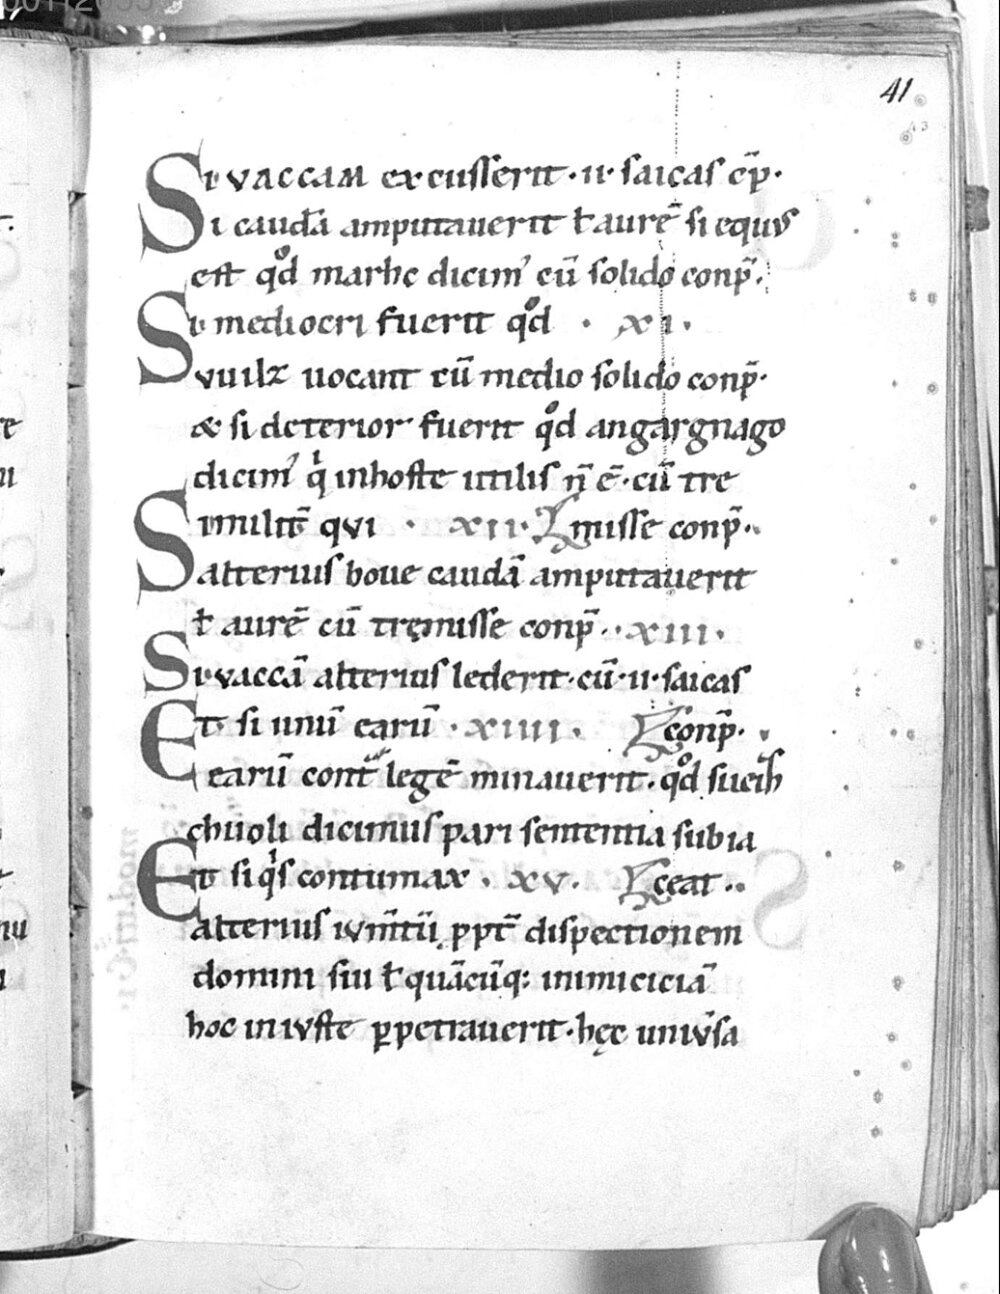 41
Si vaccam excusserit · ii · saicas cp̄ ·
Si caudā amputauerit ł aurē si equus
est qͦd marhc dicim' cū solido conp̄ .
Si mediocri fuerit qͦd · xi ·
vuilz uocant cū medio solido conp̄ ·
& si deterior fuerit qͦd angargnago
dicim' qⁱ inhoste utilis n̄ ē · cū tre
Similit̄ qui · xii · misse conp̄ .
alterius boue caudā amputauerit
ł aurē cū tremisse conp̄ . · xiii ·
Si vaccā alterius lederit · cū · ii · saicas
Et si unū earū · xiiii · conp̄ ·
earū cont̄ legē minauerit · qͦd suei
chuoli dicimus pari sententia subia
Et si qⁱs contumax · xv · ceat ..
alterius ivm̄tū ppt̄ dispectionem
domini siu ł quācūq: inimiciciā
hoc iniuste ꝑpetrauerit · hęc uniuͮsa